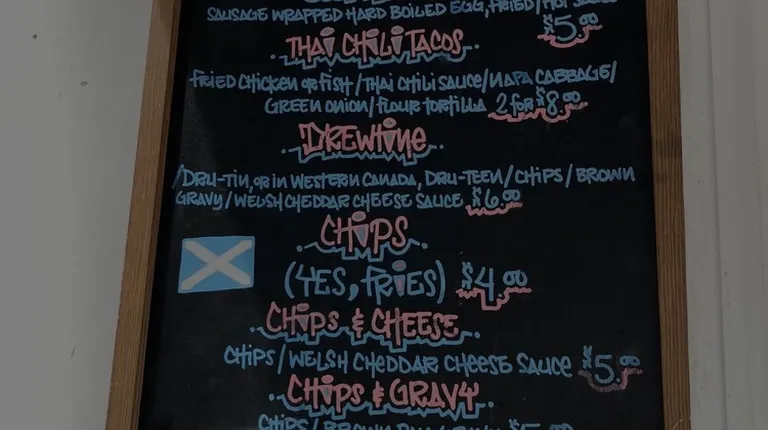 SAUSAGE WRAPPED HARD BOILED EGG, FRIED/HOT SAUCE
$5.00
THAI CHILI TACOS
FRIED CHICKEN OR FISH/THAI CHILI SAUCE/NAPA CABBAGE/
GREEN ONION/FLOUR TORTILLA 2 FOR $8.00
DREWTINE
/DRU-TIN, OR IN WESTERN CANADA, DRU-TEEN/CHIPS/BROWN
GRAVY/WELSH CHEDDAR CHEESE SAUCE $6.00
CHIPS
(YES, FRIES) $4.00
CHIPS & CHEESE
CHIPS/WELSH CHEDDAR CHEESE SAUCE $5.00
CHIPS & GRAVY
CHIPS/BROWN